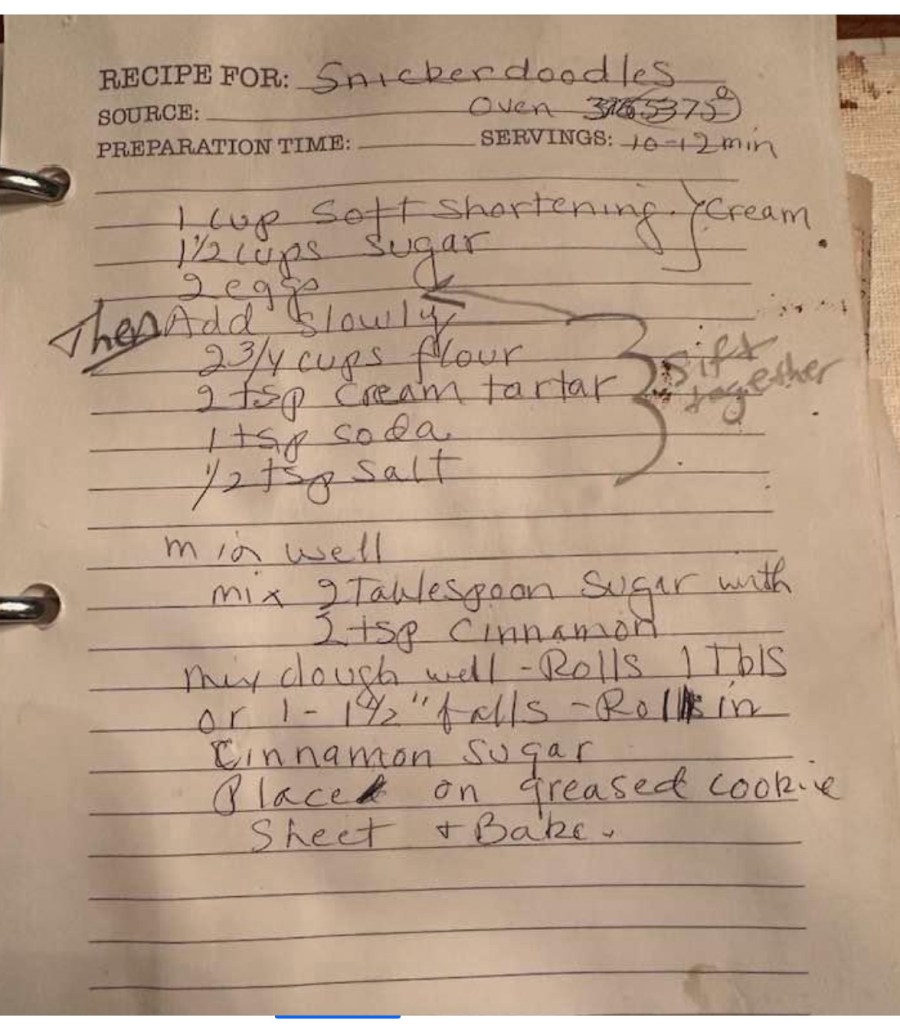 RECIPE FOR: Snickerdoodles
SOURCE: Oven 375°
PREPARATION TIME: SERVINGS: 10-12 min
1 cup soft shortening } Cream
1 1/2 cups sugar
2 eggs
Then Add slowly
2 3/4 cups flour
2 tsp cream tartar } Sift together
1 tsp soda
1/2 tsp salt
mix well
mix 2 Tablespoon sugar with
2 tsp cinnamon
Mix dough well - Rolls 1 Tbls
or 1 - 1 1/2" balls - Roll in
Cinnamon sugar
Place on greased cookie
Sheet + Bake.